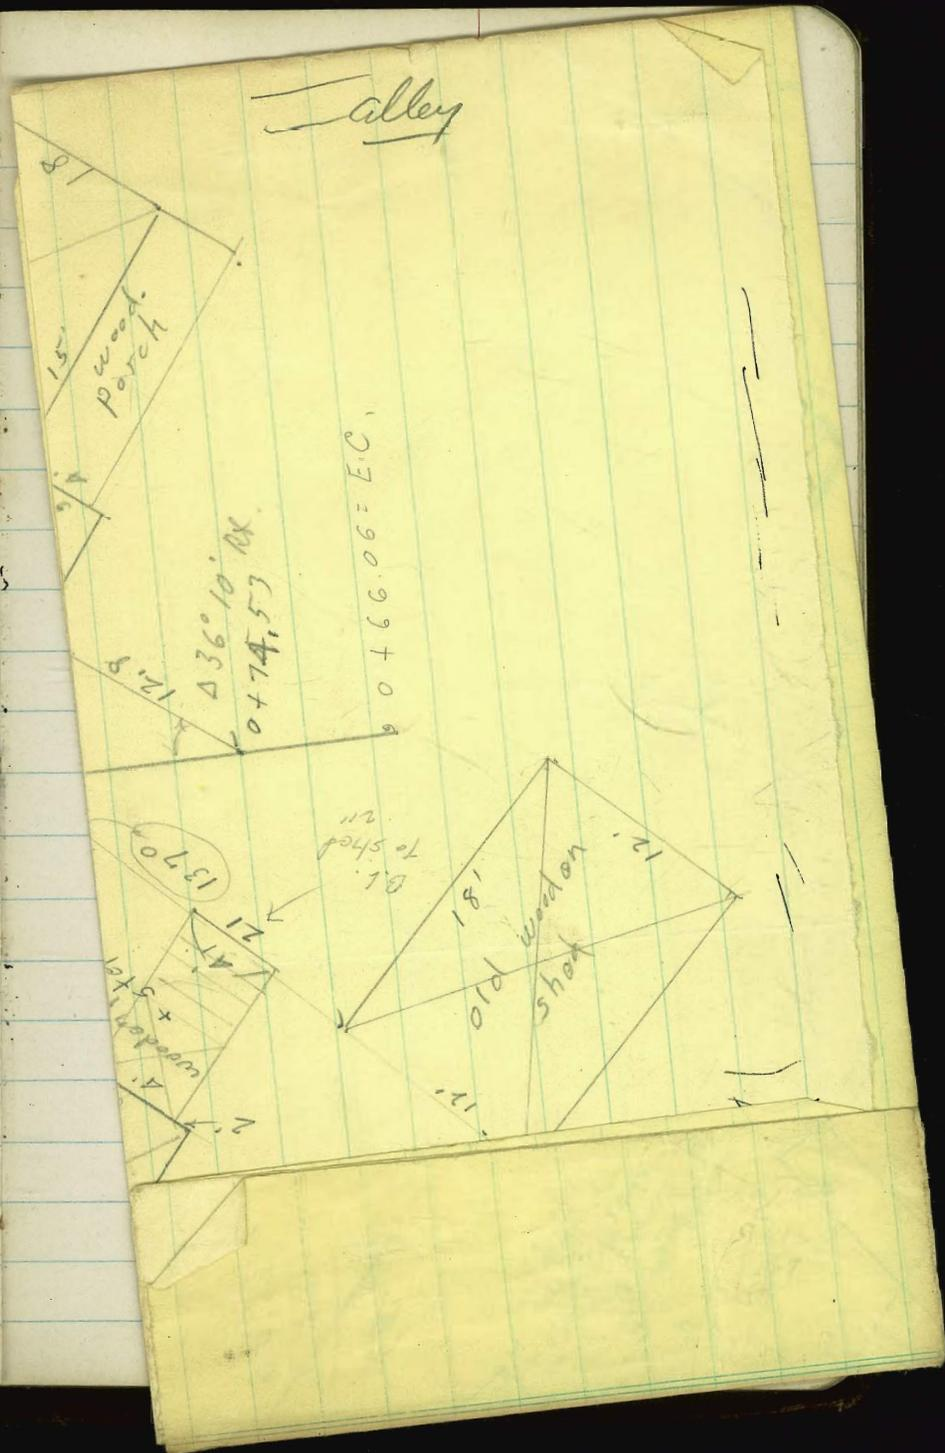 alley
18
15'
wood.
Porch
Δ 36° 10' Rt.
0+74.53
0+66.06 = E.C.
12.8
137°
B.L.
To shed
21'
4'
wooden
4'
2'
18'
12'
old wooden
shed
12'